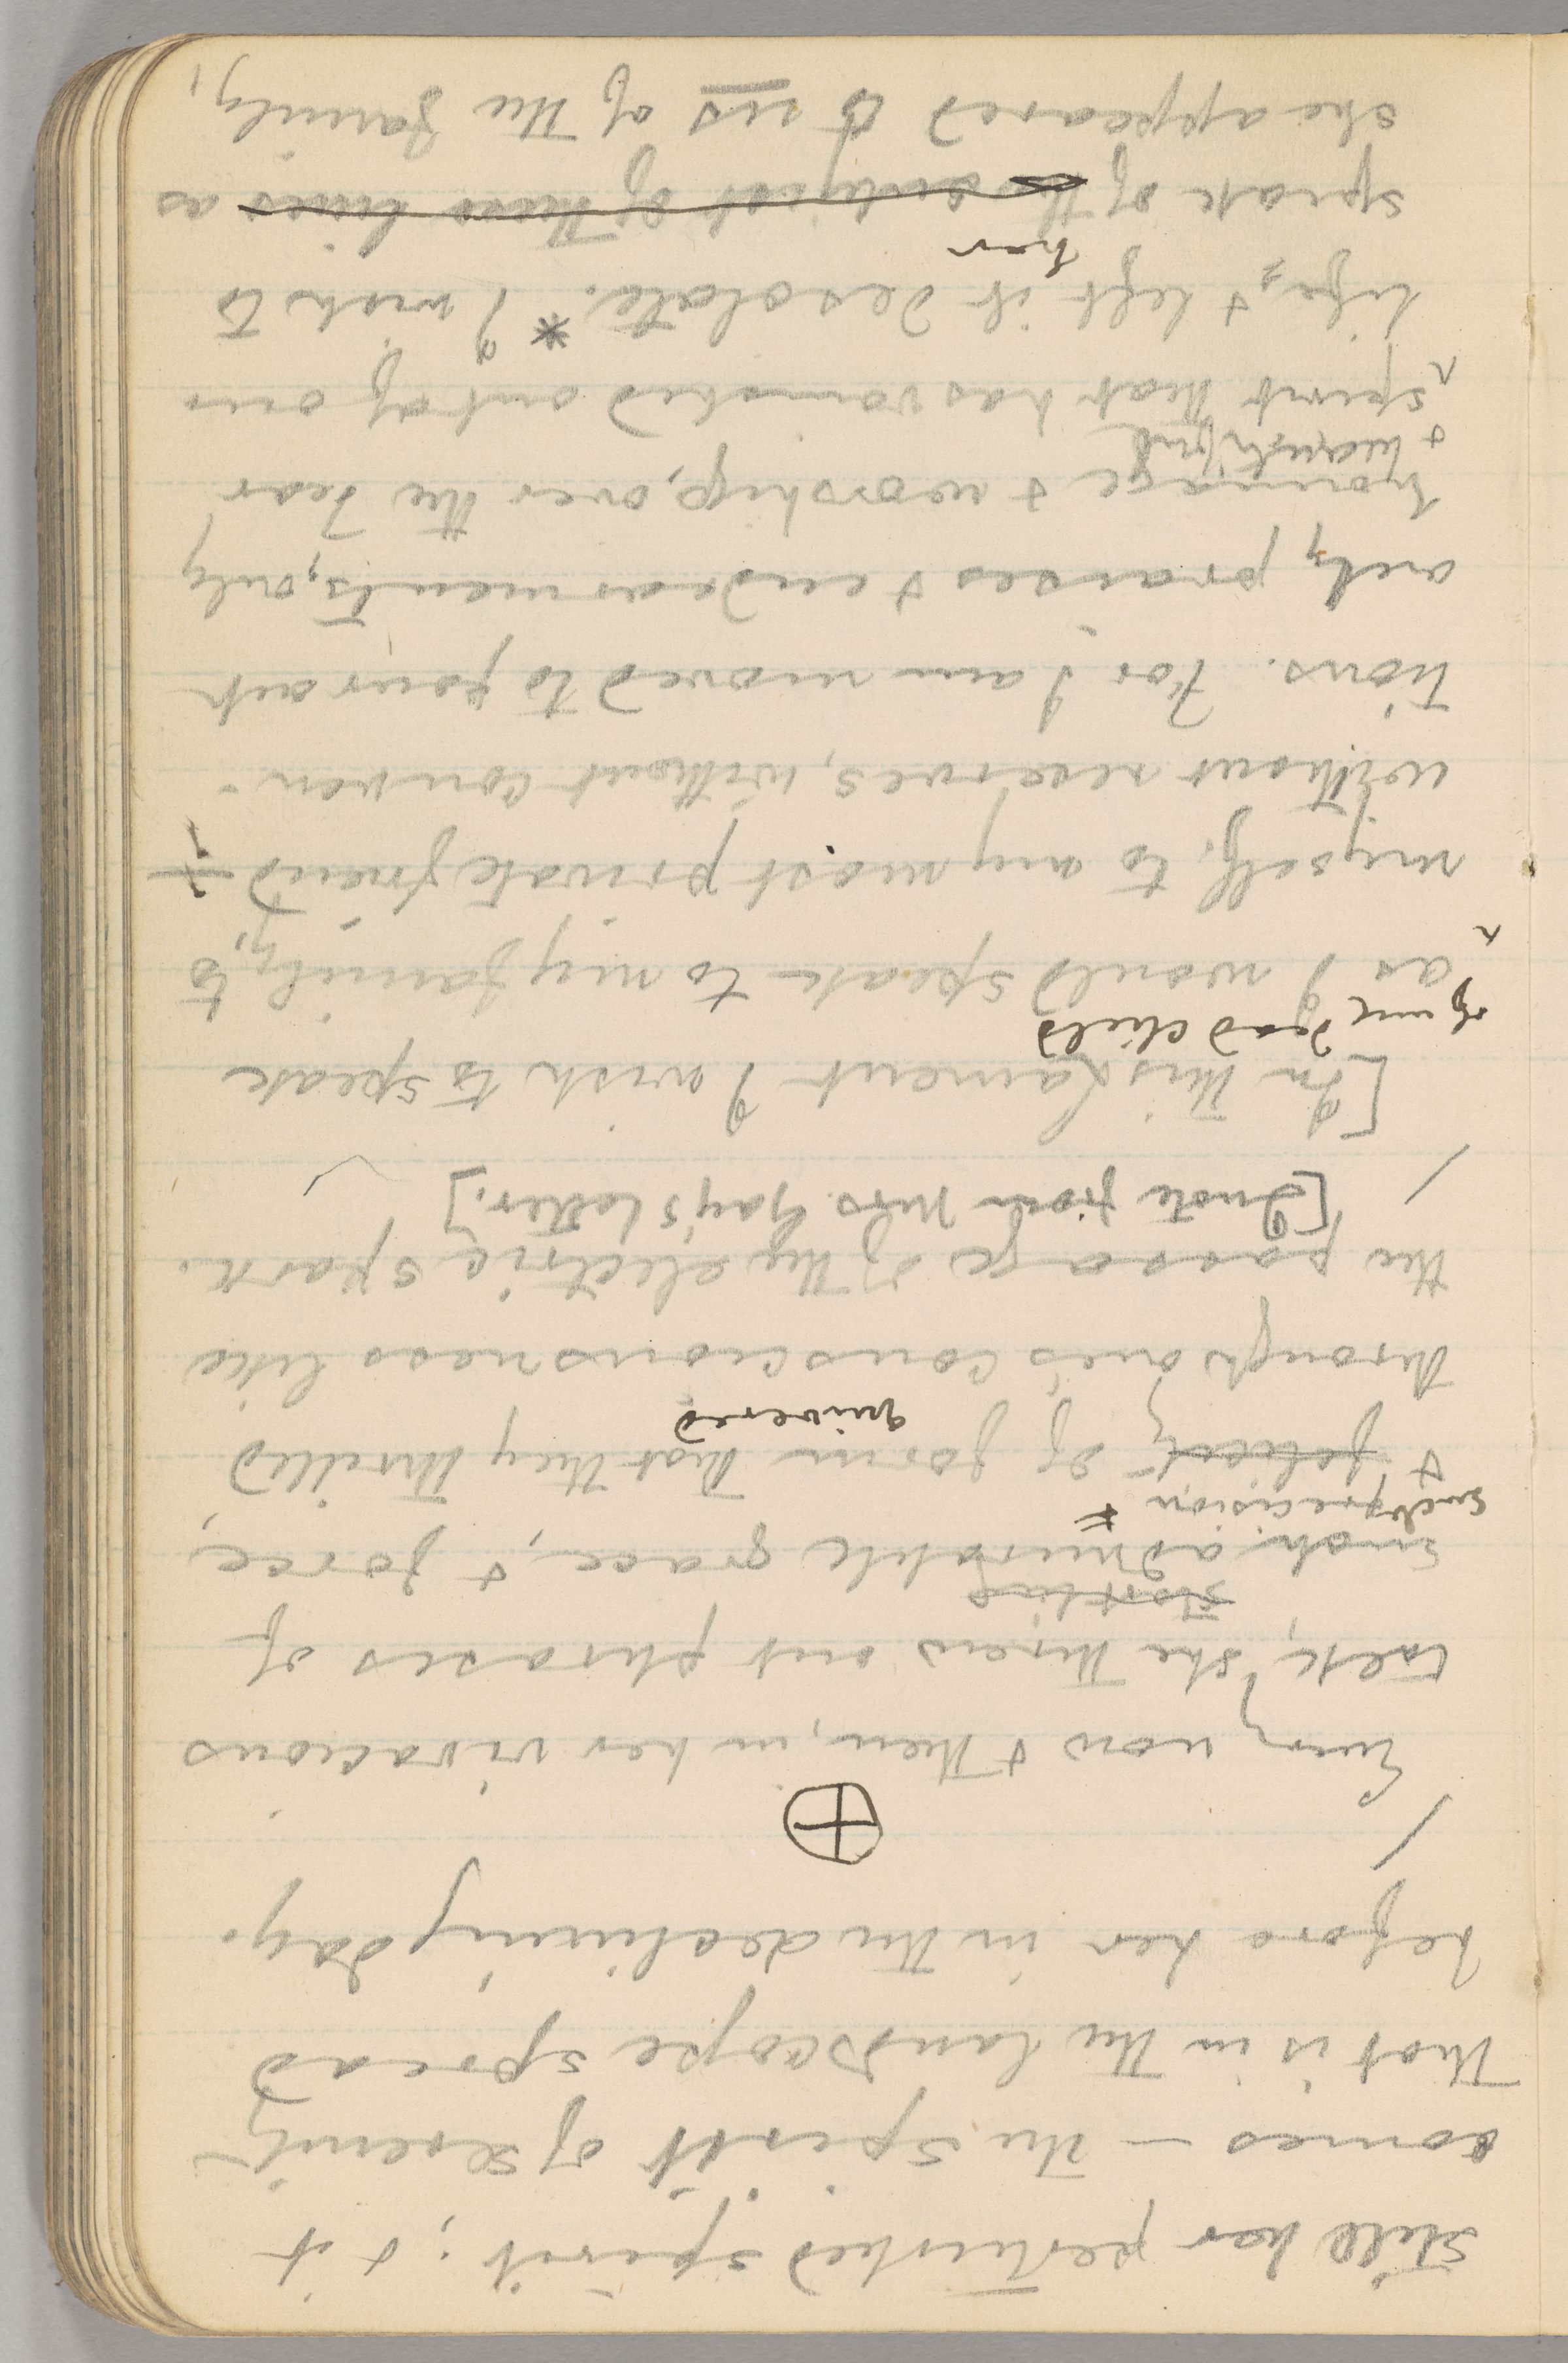 still her perturbed spirit; & it
comes — the spirit of serenity
that is in the landscape spread
before her in the declining day.
/
⊕
Every now & then, in her vivacious
talk, she threw out phrases of
startling
such admirable grace, & force,
such precision
& felicity of form that they thrilled
quivered
through one's consciousness like
the passage of the electric spark.
/ [Quote from Mrs. Gay's letter.]
[In this Lament I wish to speak
of my dead child
as I would speak to my family, to
myself, to my most private friend
without reserves, without conven-
tions. For I am moved to pour out
only praises & endearments, only
homage & worship, over the dear
& beautiful
spirit that has vanished out of our
life, & left it desolate. * I wish to
her
speak of the subject of these lines as
she appeared to us of the family,